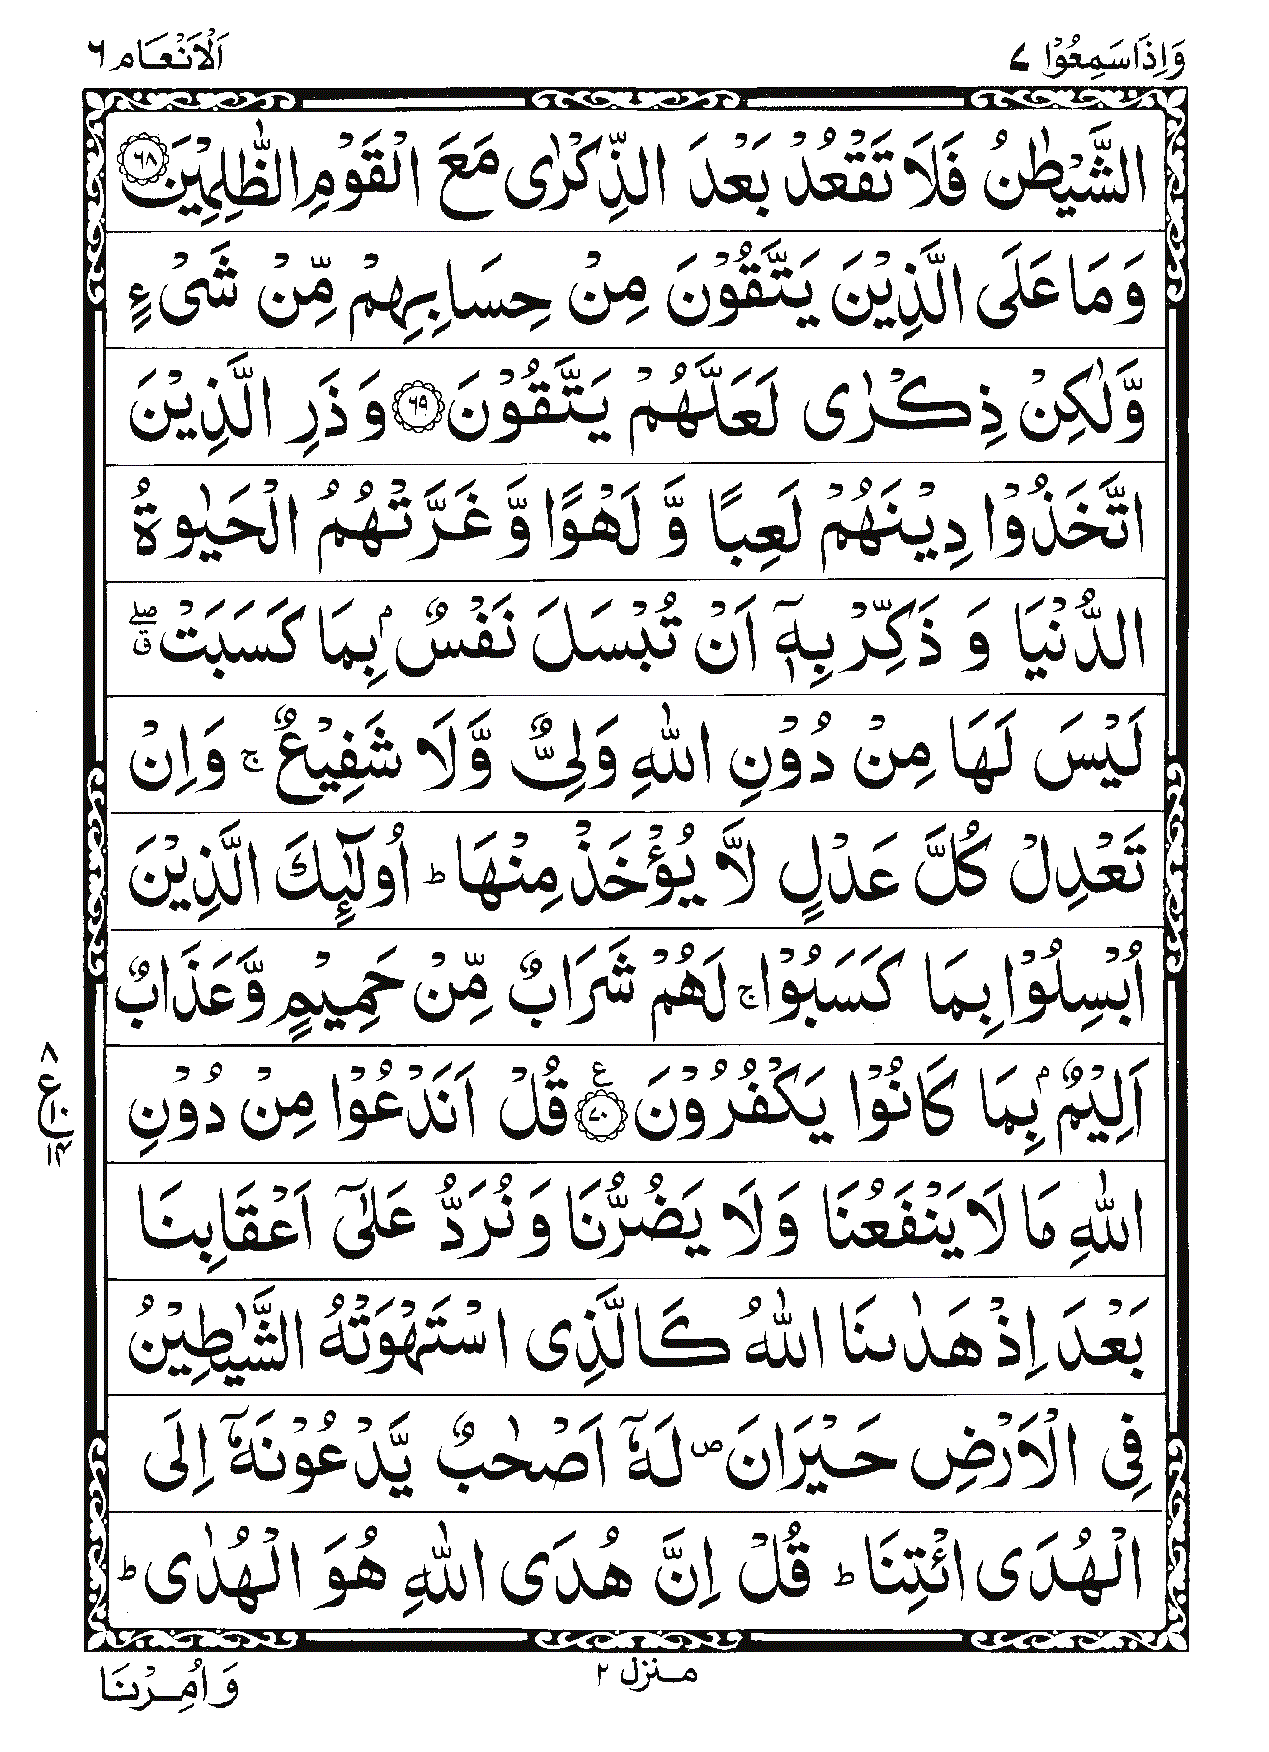 وَاِذَاسَمِعُوْا ٧
اَلْاَنْعَام ٦
الشَّيْطٰنُ فَلَا تَقْعُدْ بَعْدَ الذِّكْرٰى مَعَ الْقَوْمِ الظّٰلِمِيْنَ ٦٨
وَمَا عَلَى الَّذِيْنَ يَتَّقُوْنَ مِنْ حِسَابِهِمْ مِّنْ شَىْءٍ
وَّلٰكِنْ ذِكْرٰى لَعَلَّهُمْ يَتَّقُوْنَ ٦٩ وَذَرِ الَّذِيْنَ
اتَّخَذُوْا دِيْنَهُمْ لَعِبًا وَّ لَهْوًا وَّ غَرَّتْهُمُ الْحَيٰوةُ
الدُّنْيَا وَ ذَكِّرْ بِهٖۤ اَنْ تُبْسَلَ نَفْسٌۢ بِمَا كَسَبَتْ ۖق
لَيْسَ لَهَا مِنْ دُوْنِ اللّٰهِ وَلِىٌّ وَّلَا شَفِيْعٌ ۚ وَاِنْ
تَعْدِلْ كُلَّ عَدْلٍ لَّا يُؤْخَذْ مِنْهَا ؕ اُولٰٓئِكَ الَّذِيْنَ
اُبْسِلُوْا بِمَا كَسَبُوْا ۚ لَهُمْ شَرَابٌ مِّنْ حَمِيْمٍ وَّعَذَابٌ
اَلِيْمٌۢ بِمَا كَانُوْا يَكْفُرُوْنَ ٧٠ ع قُلْ اَنَدْعُوْا مِنْ دُوْنِ
٨ ع ١٠ ١٤
اللّٰهِ مَا لَا يَنْفَعُنَا وَلَا يَضُرُّنَا وَنُرَدُّ عَلٰٓى اَعْقَابِنَا
بَعْدَ اِذْ هَدٰىنَا اللّٰهُ كَالَّذِى اسْتَهْوَتْهُ الشَّيٰطِيْنُ
فِى الْاَرْضِ حَيْرَانَ ص لَهٗۤ اَصْحٰبٌ يَّدْعُوْنَهٗۤ اِلَى
الْهُدَى ائْتِنَا ؕ قُلْ اِنَّ هُدَى اللّٰهِ هُوَ الْهُدٰى ؕ
منزل ٢
وَاُمِرْنَا